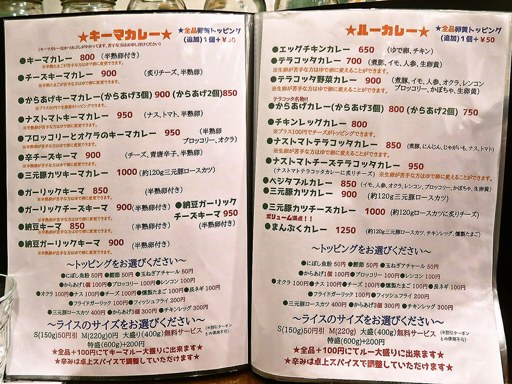 ★キーマカレー★
★全品卵黄トッピング
(追加)1個+￥50
●キーマカレー 800 (半熟卵付)
●チーズキーマカレー 900 (炙りチーズ、半熟卵)
●からあげキーマカレー(からあげ3個) 900 (からあげ2個)850
●ナストマトキーマカレー 950 (ナス、トマト、半熟卵)
●ブロッコリーとオクラのキーマカレー 950 (半熟卵
ブロッコリー、オクラ)
●辛チーズキーマ 900 (チーズ、青唐辛子、半熟卵)
●三元豚カツキーマカレー 1000 (約120g三元豚ロースカツ)
●ガーリックキーマ 850 (半熟卵付き)
●ガーリックチーズキーマ 900 (半熟卵付)
●納豆ガーリック
チーズキーマ 950
(半熟卵付き)
●納豆キーマ 850 (半熟卵付き)
●納豆ガーリックキーマ 900 (半熟卵付き)
～トッピングをお選びください～
●にぼし魚粉 50円 ●鰹節 50円 ●玉ねぎアチャール 50円
●からあげ1個 100円 ●ブロッコリー 100円 ●レンコン 100円
●オクラ 100円 ●ナス 100円 ●チーズ 100円 ●燻製たまご 100円 ●長ネギ 100円
●フライドガーリック 100円 ●フィッシュフライ 200円
●三元豚カツ 400円 ●からあげ3個 300円 ●チキンレッグ 300円
～ライスのサイズをお選びください～
S(150g)50円引 M(220g)0円 大盛り(400g)無料サービス
特盛(600g)+200円
★全品+100円にてキーマルー大盛りに出来ます★
★辛みは卓上スパイスで調整していただけます★
★ルーカレー★
★全品卵黄トッピング
(追加)1個+￥50
●エッグチキンカレー 650 (ゆで卵、チキン)
●テラコッタカレー 700 (煮豚、イモ、人参、生卵黄)
●テラコッタ野菜カレー 900 (煮豚、イモ、人参、オクラ、レンコン
ブロッコリー、かぼちゃ、生卵黄)
テラコッタ名物!!
●からあげカレー(からあげ3個) 800 (からあげ2個) 750
●チキンレッグカレー 800
●ナストマトテラコッタカレー 850 (煮豚、にんじん、じゃがいも、ナス、トマト)
●ナストマトチーズテラコッタカレー 950
(ナストマトテラコッタカレーに炙りチーズ)
●ベジタブルカレー 850 (イモ、人参、オクラ、レンコン、ブロッコリー、かぼちゃ、生卵黄)
●三元豚カツカレー 900 (約120g三元豚ロースカツ)
●三元豚カツチーズカレー 1000 (約120gロースカツに炙チーズ)
ボリューム満点!!
●まんぷくカレー 1250 (約120g三元豚ロースカツ、チキンレッグ、燻製たまご)
～トッピングをお選びください～
●にぼし魚粉 50円 ●鰹節 50円 ●玉ねぎアチャール 50円
●からあげ1個 100円 ●ブロッコリー 100円 ●レンコン 100円
●オクラ 100円 ●ナス 100円 ●チーズ 100円 ●燻製たまご 100円 ●長ネギ 100円
●フライドガーリック 100円 ●フィッシュフライ 200円
●三元豚カツ 400円 ●からあげ3個 300円 ●チキンレッグ 300円
～ライスのサイズをお選びください～
S(150g)50円引 M(220g) 大盛(400g)無料サービス
特盛(600g)+200円
★全品+100円にてルー大盛りに出来ます★
★辛みは卓上スパイスで調整していただけます★